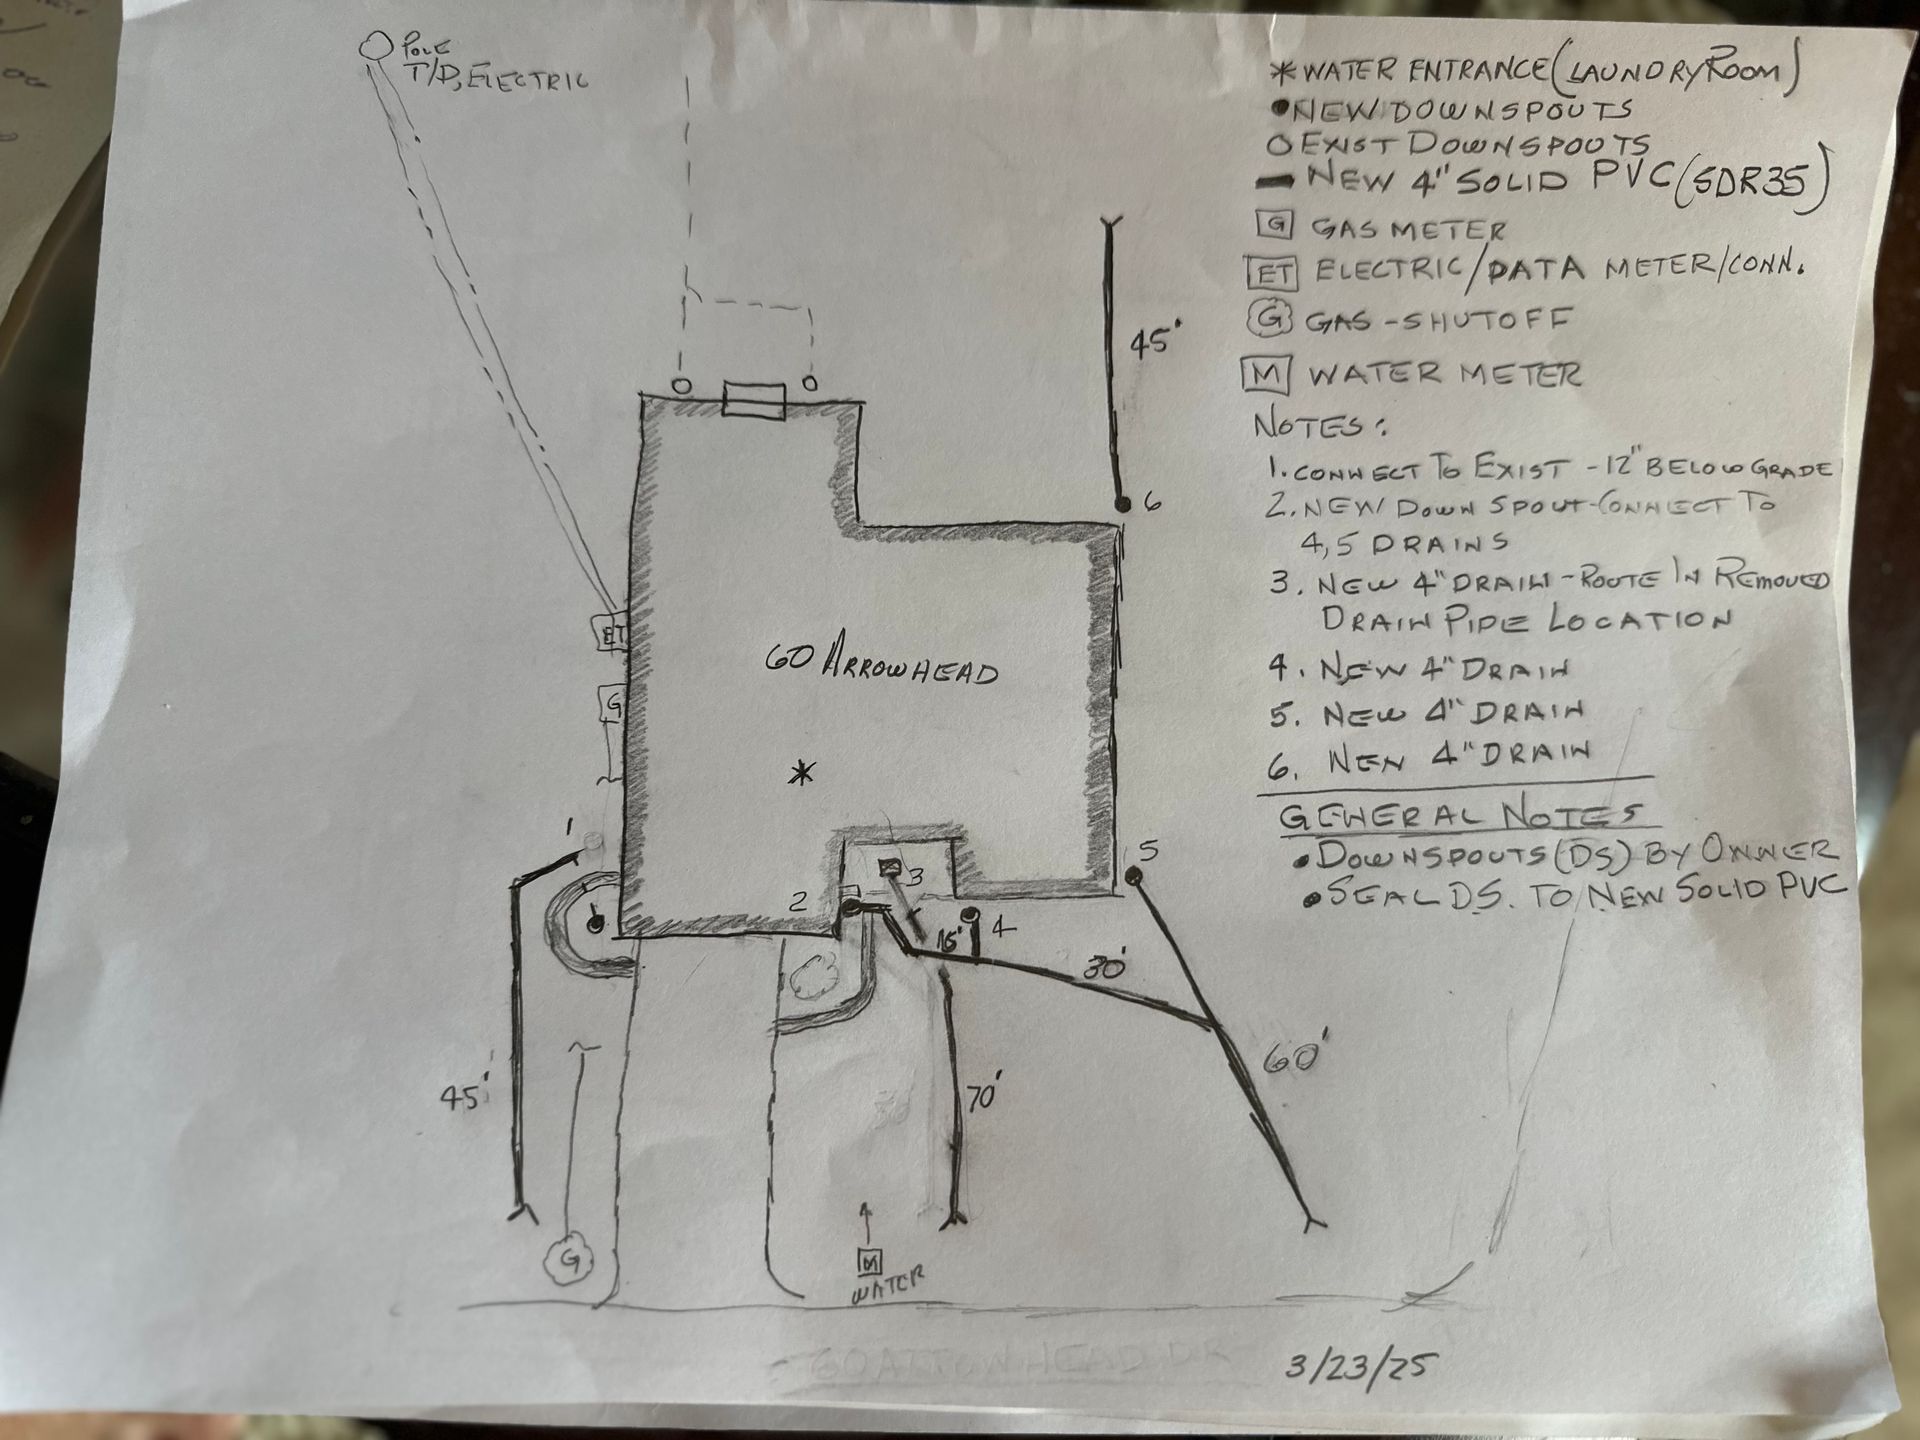 POLE
T/D, ELECTRIC
* WATER ENTRANCE (LAUNDRY ROOM)
● NEW DOWNSPOUTS
○ EXIST DOWNSPOUTS
— NEW 4" SOLID PVC (SDR35)
G GAS METER
ET ELECTRIC/DATA METER/CONN.
G GAS - SHUTOFF
M WATER METER
NOTES:
1. CONNECT TO EXIST - 12" BELOW GRADE
2. NEW DOWN SPOUT - CONNECT TO
4,5 DRAINS
3. NEW 4" DRAIN - ROUTE IN REMOVED
DRAIN PIPE LOCATION
4. NEW 4" DRAIN
5. NEW 4" DRAIN
6. NEW 4" DRAIN
GENERAL NOTES
● DOWNSPOUTS (DS) BY OWNER
● SEAL DS. TO NEW SOLID PVC
45'
6
ET
60 ARROWHEAD
G
*
1
5
3
2
4
15'
30'
60'
45'
70'
G
M
WATER
60 ARROWHEAD DR
3/23/25